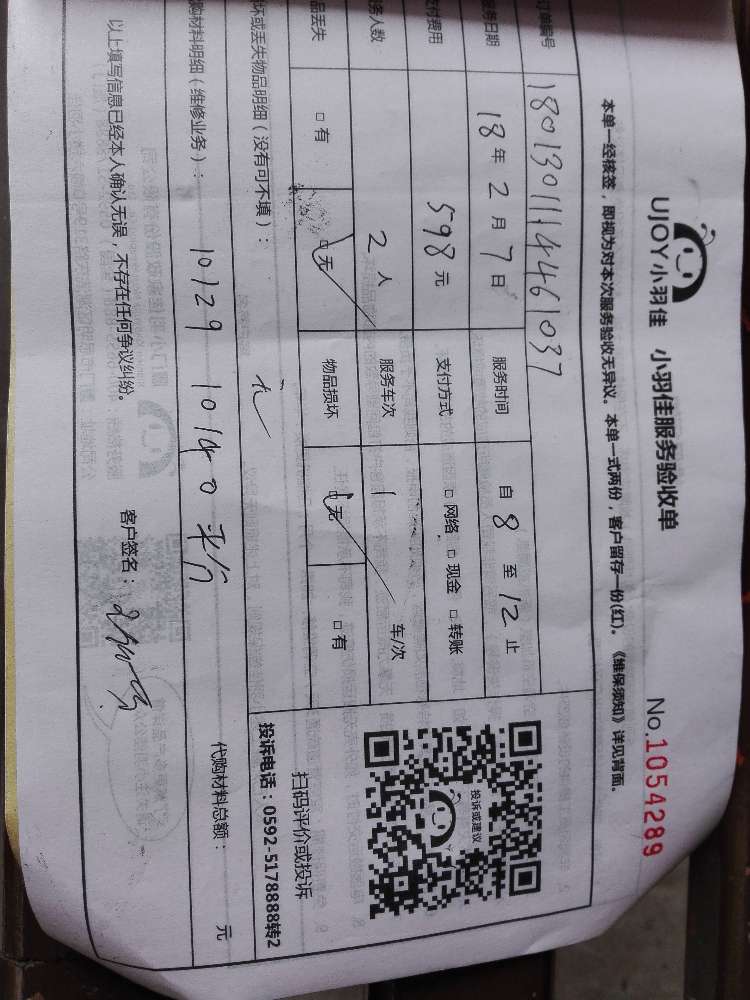 UJOY小羽佳 小羽佳服务验收单 No.1054289
本单一经核签，即视为对本次服务验收无异议。本单一式两份，客户留存一份(红)。《维保须知》详见背面。
订单编号 18013011144461037
服务日期 18年2月7日 服务时间 自8至12止
支付费用 598元 支付方式 □网络 □现金 □转账
服务人数 2人 服务车次 1 车/次
品丢失 □有 □无 物品损坏 □无 □有
坏或丢失物品明细（没有可不填）：
购材料明细（维修业务）： 代购材料总额： 元
10129 10140
以上填写信息已经本人确认无误，不存在任何争议纠纷。 客户签名：
投诉或建议
扫码评价或投诉
投诉电话：0592-5178888转2